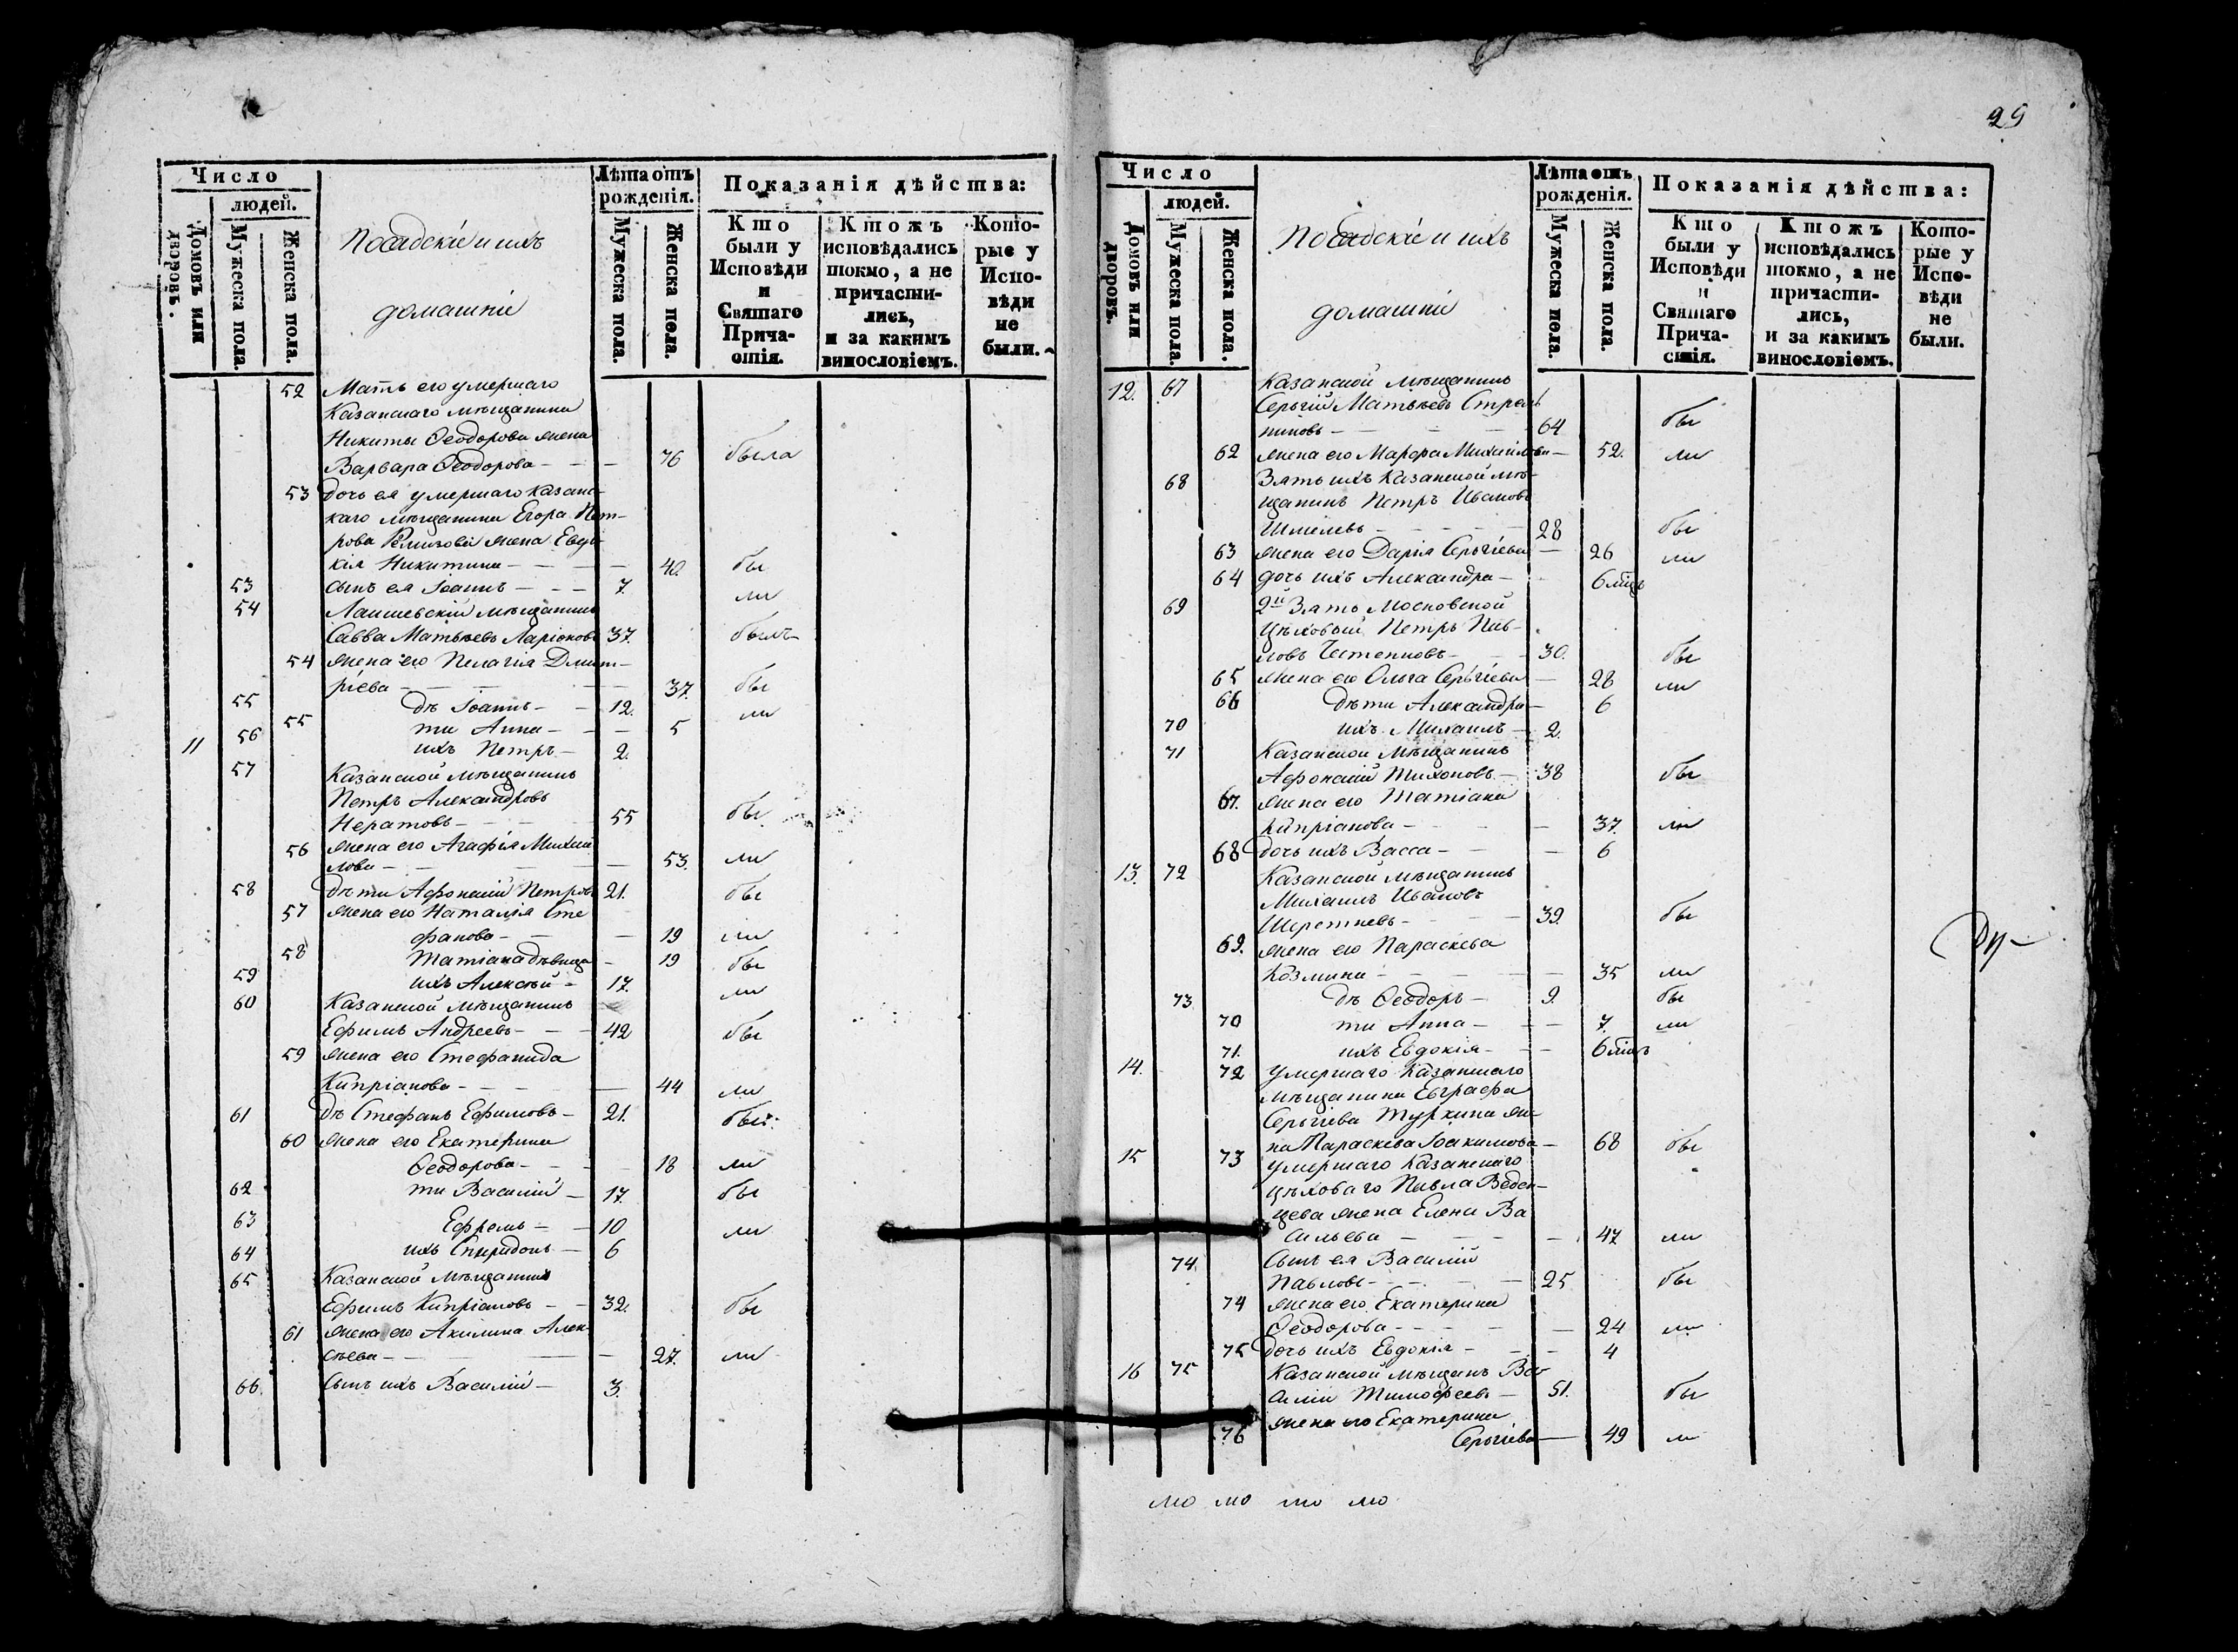 Число
людей.
Домовъ или дворовъ.
Мужеска пола.
Женска пола.
Посадскіе и ихъ
домашніи
Лѣта отъ рожденія.
Мужеска пола.
Женска пола.
Показанія дѣйства:
Кто были у Исповѣди и Святаго Причастія.
Ктожъ исповѣдались токмо, а не причастились, и за какимъ винословіемъ.
Которые у Исповѣди не были.
52 Мать его умершаго
Казанскаго мѣщанина
Никиты Ѳеодорова жена
Варвара Ѳеодорова - - - 76 была
53 дочь ея умершаго казанс-
каго мѣщанина Егора Пет-
рова Ремизова жена Евдо
кія Никитина - - - 40. бы
53 сынъ ея Іоаннъ - - - 7. ли
54 Лаишевскій мѣщанинъ
Савва Матвѣевъ Ларіоновъ 37. былъ
54 жена его Пелагія Дмит-
ріева - - - 37. бы
55 дѣ Іоаннъ - - 12. ли
55 ти Анна - - - 5
11 56 ихъ Петръ - 2.
57 Казанской мѣщанинъ
Петръ Александровъ
Нератовъ - - - 55 бы
56 жена его Агафія Михай
лова - - - 53. ли
58 дѣти Афонасій Петровъ 21. бы
57 жена его Наталія Сте
фанова - - - 19 ли
58 Татіана дѣвица - 19 бы
59 ихъ Алексѣй - 17. ли
60 Казанской мѣщанинъ
Ефимъ Андреевъ - - - 42 бы
59 жена его Стефанида
Кипріанова - - - 44 ли
61 дѣ Стефанъ Ефимовъ - 21. бы
60 жена его Екатерина
Ѳеодорова - - - 18 ли
62 ти Василій - 17. бы
63 Ефремъ - - 10 ли
64 ихъ Спиридонъ - 6
65 Казанской мѣщанинъ
Ефимъ Кипріановъ - - 32. бы
61 жена его Акилина Алек-
сѣева - - - 27. ли
66. Сынъ ихъ Василій - 3.
29
Число
людей.
Домовъ или дворовъ.
Мужеска пола.
Женска пола.
Посадскіе и ихъ
домашніи
Лѣта отъ рожденія.
Мужеска пола.
Женска пола.
Показанія дѣйства:
Кто были у Исповѣди и Святаго Причастія.
Ктожъ исповѣдались токмо, а не причастились, и за какимъ винословіемъ.
Которые у Исповѣди не были.
12. 67 Казанской мѣщанинъ
Сергій Матвѣевъ Стрель
никовъ - - - 64 бы
62 жена его Марфа Михайлова - 52. ли
68 Зять ихъ Казанской мѣ-
щанинъ Петръ Ивановъ
Шмелевъ - - - 28 бы
63 жена его Дарія Сергіева - 26 ли
64 дочь ихъ Александра - - 6 мѣцъ
69 2й Зять Московской
Цѣховый Петръ Пав-
ловъ - - 30. бы
65 жена его Ольга Сергіева - 28 ли
66 дѣти Александра - 6
70 ихъ Михаилъ - 2.
71 Казанской мѣщанинъ
Афонасій Тихоновъ - 38 бы
67. жена его Татіана
Кипріанова - - - 37. ли
68 дочь ихъ Васса - - - 6
13. 72 Казанской мѣщанинъ
Михаилъ Ивановъ
Шерстневъ - - - 39. бы
69. жена его Параскева
Козмина - - - 35 ли
73 дѣ Ѳеодоръ - 9. бы
70 ти Анна - - - 7. ли
71. ихъ Евдокія - - - 6 мѣцъ
14. 72 умершаго Казанскаго
мѣщанина Евграфа
Сергіева Туркина же-
на Параскева Іоакимова - 68 бы
15 73 умершаго Казанскаго
цѣховаго Павла Веден-
цева жена Елена Ва
сильева - - - 47 ли
74. Сынъ ея Василій
Павловъ - - - 25 бы
74 жена его Екатерина
Ѳеодорова - - - 24 ли
75 дочь ихъ Евдокія - - - 4
16 75 Казанской мѣщанъ Ва
силій Тимофеевъ - 51. бы
76 жена его Екатерина
Сергіева - 49 ли